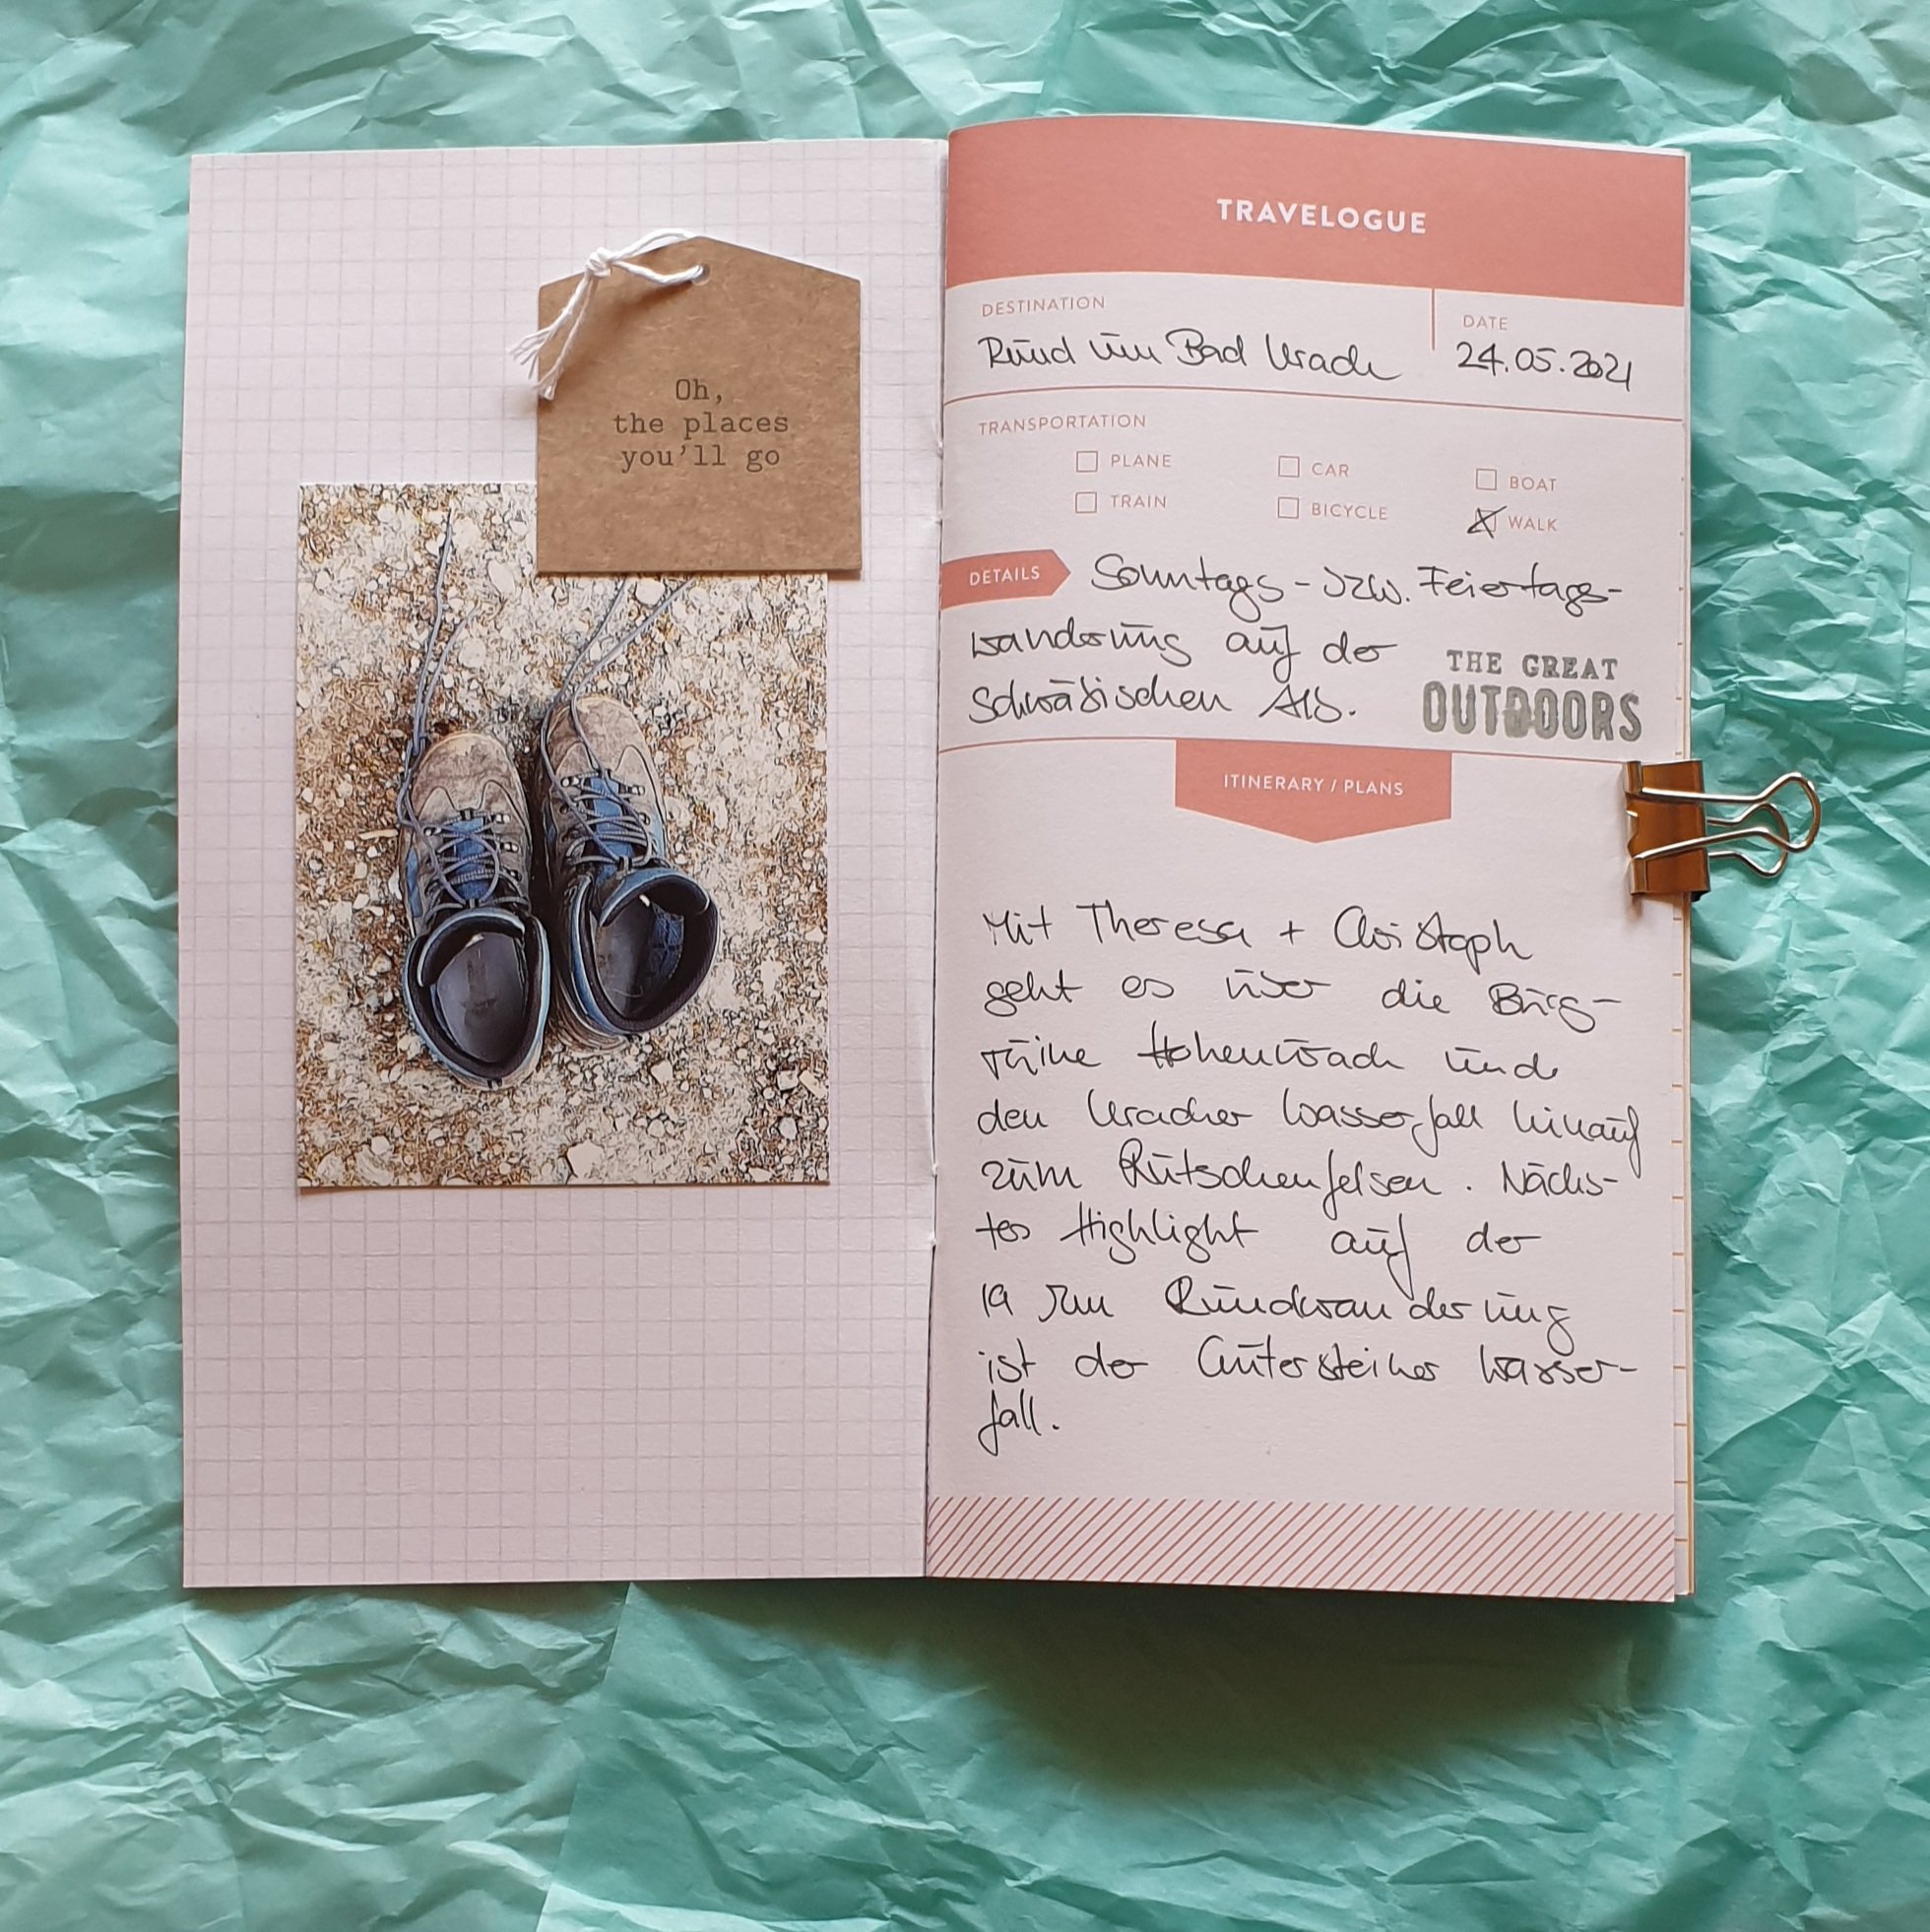 Oh,
the places
you'll go
TRAVELOGUE
DESTINATION
Rund um Bad Urach
DATE
24.05.2021
TRANSPORTATION
PLANE
CAR
BOAT
TRAIN
BICYCLE
WALK
DETAILS
Sonntags- bzw. Feiertags-
wanderung auf der
Schwäbischen Alb.
THE GREAT
OUTDOORS
ITINERARY / PLANS
Mit Theresa + Christoph
geht es über die Burg-
ruine Hohenurach und
den Uracher Wasserfall hinauf
zum Rutschenfelsen. Nächs-
tes Highlight auf der
19 km Rundwanderung
ist der Gütersteiner Wasser-
fall.